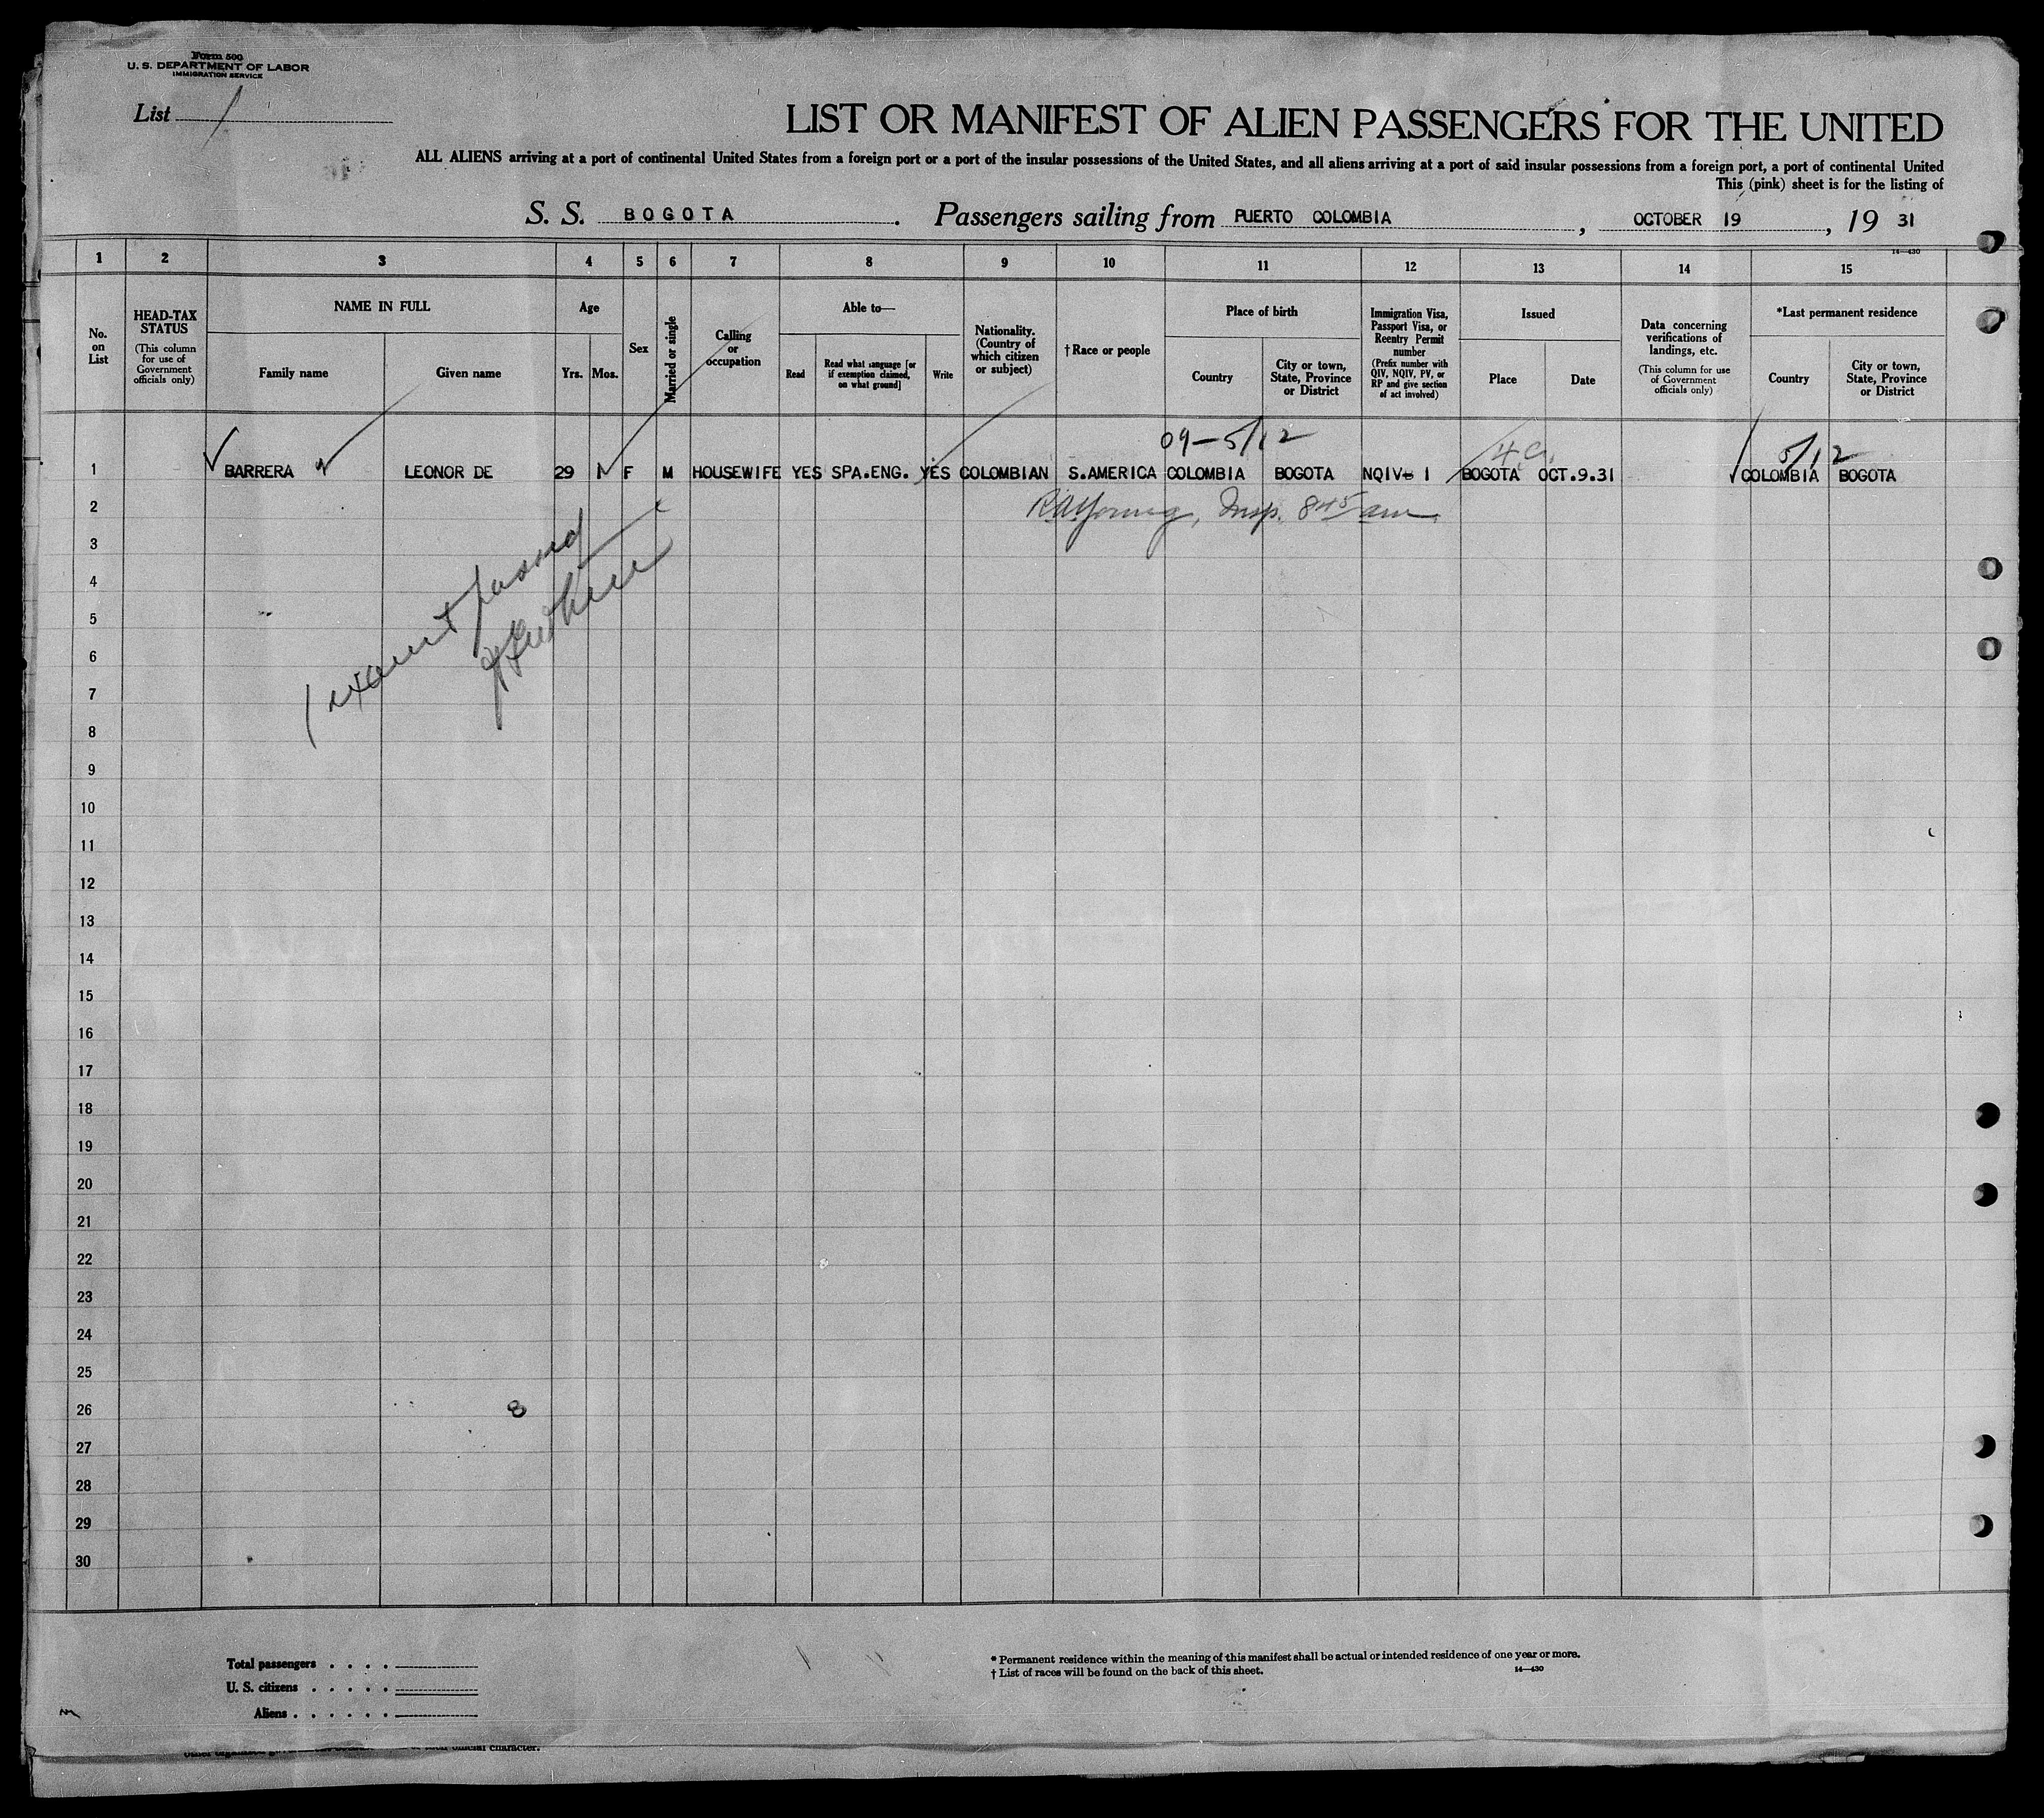 Form 500
U. S. DEPARTMENT OF LABOR
IMMIGRATION SERVICE
List 1
LIST OR MANIFEST OF ALIEN PASSENGERS FOR THE UNITED
ALL ALIENS arriving at a port of continental United States from a foreign port or a port of the insular possessions of the United States, and all aliens arriving at a port of said insular possessions from a foreign port, a port of continental United
This (pink) sheet is for the listing of
S. S. BOGOTA. Passengers sailing from PUERTO COLOMBIA, OCTOBER 19, 19 31
14—430
1 2 3 4 5 6 7 8 9 10 11 12 13 14 15
No. on List
HEAD-TAX STATUS
(This column for use of Government officials only)
NAME IN FULL
Family name
Given name
Age
Yrs.
Mos.
Sex
Married or single
Calling or occupation
Able to—
Read
Read what language [or if exemption claimed, on what ground]
Write
Nationality. (Country of which citizen or subject)
† Race or people
Place of birth
Country
City or town, State, Province or District
Immigration Visa, Passport Visa, or Reentry Permit number
(Prefix number with QIV, NQIV, PV, or RP and give section of act involved)
Issued
Place
Date
Data concerning verifications of landings, etc.
(This column for use of Government officials only)
*Last permanent residence
Country
City or town, State, Province or District
09-5/12
5/12
1 BARRERA LEONOR DE 29 F M HOUSEWIFE YES SPA.ENG. YES COLOMBIAN S.AMERICA COLOMBIA BOGOTA NQIV- 1 BOGOTA OCT.9.31 COLOMBIA BOGOTA
2
R A Young, Insp. 8 45 am
3
4
5
6
7
8
9
10
11
12
13
14
15
16
17
18
19
20
21
22
23
24
25
26
8
27
28
29
30
Total passengers . . . .
U. S. citizens . . . . .
Aliens . . . . . .
* Permanent residence within the meaning of this manifest shall be actual or intended residence of one year or more.
† List of races will be found on the back of this sheet.
14—430
official character.